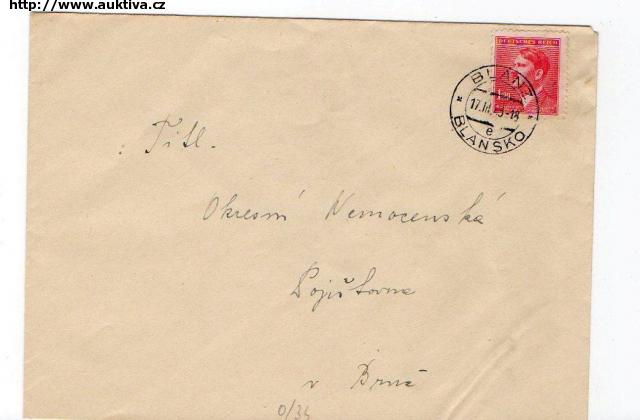 http://www.auktiva.cz
DEUTSCHES REICH
BLANZ
BLANSKO
e
Titl.
Okresní Nemocenská
Pojišťovna
v Brně
0/34